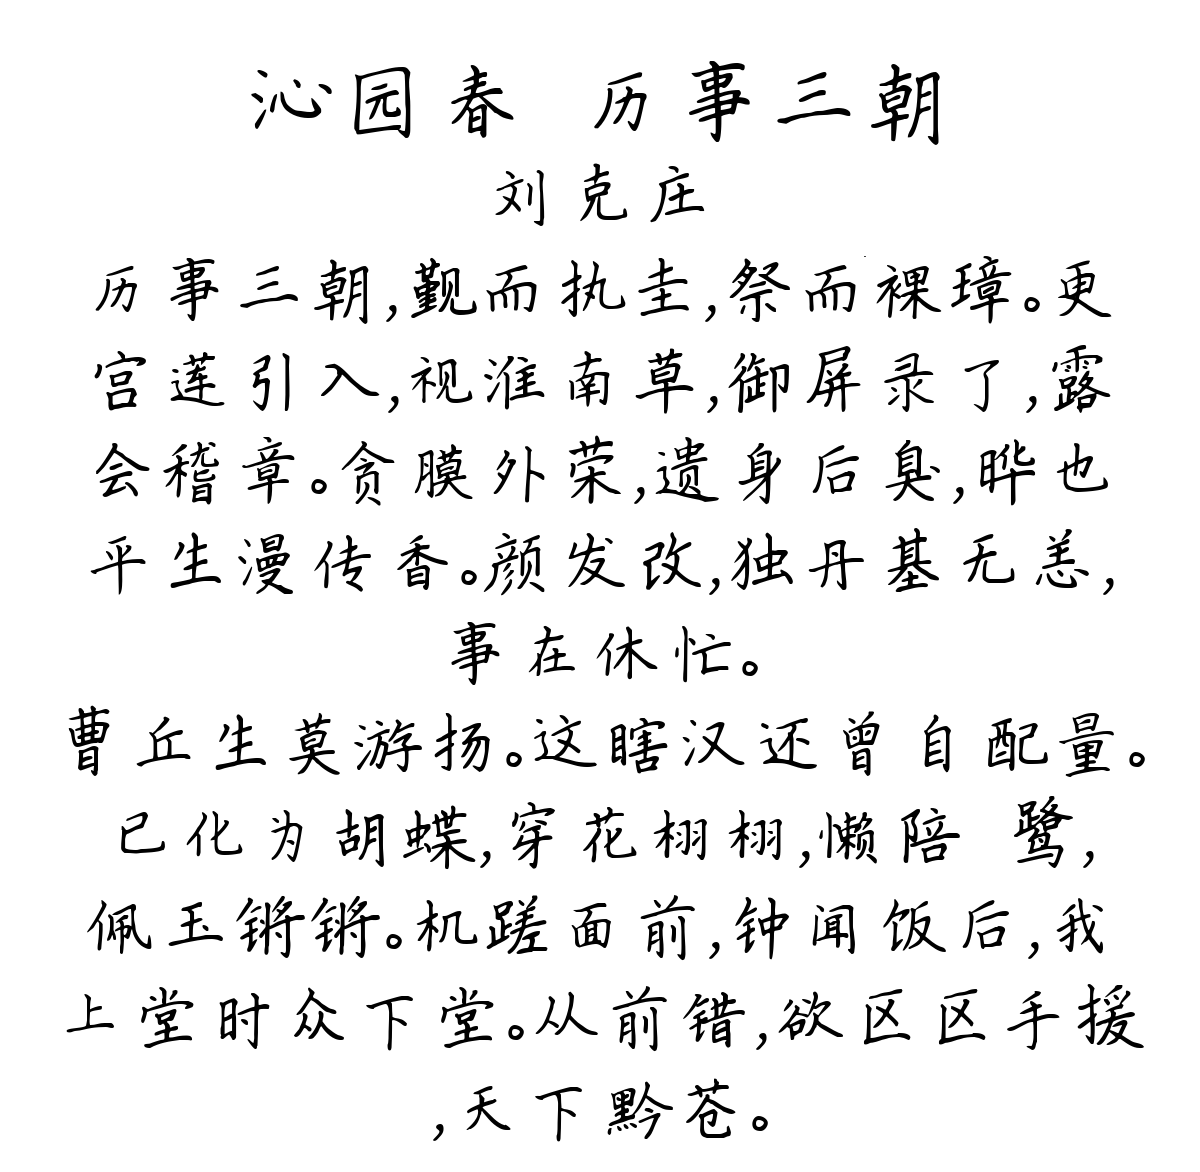 沁园春 历事三朝
刘克庄
历事三朝,觐而执圭,祭而裸璋。更
宫莲引入,视淮南草,御屏录了,露
会稽章。贪膜外荣,遗身后臭,晔也
平生漫传香。颜发改,独丹基无恙,
事在休忙。
曹丘生莫游扬。这瞎汉还曾自配量。
已化为胡蝶,穿花栩栩,懒陪 鹭,
佩玉锵锵。机蹉面前,钟闻饭后,我
上堂时众下堂。从前错,欲区区手援
,天下黔苍。